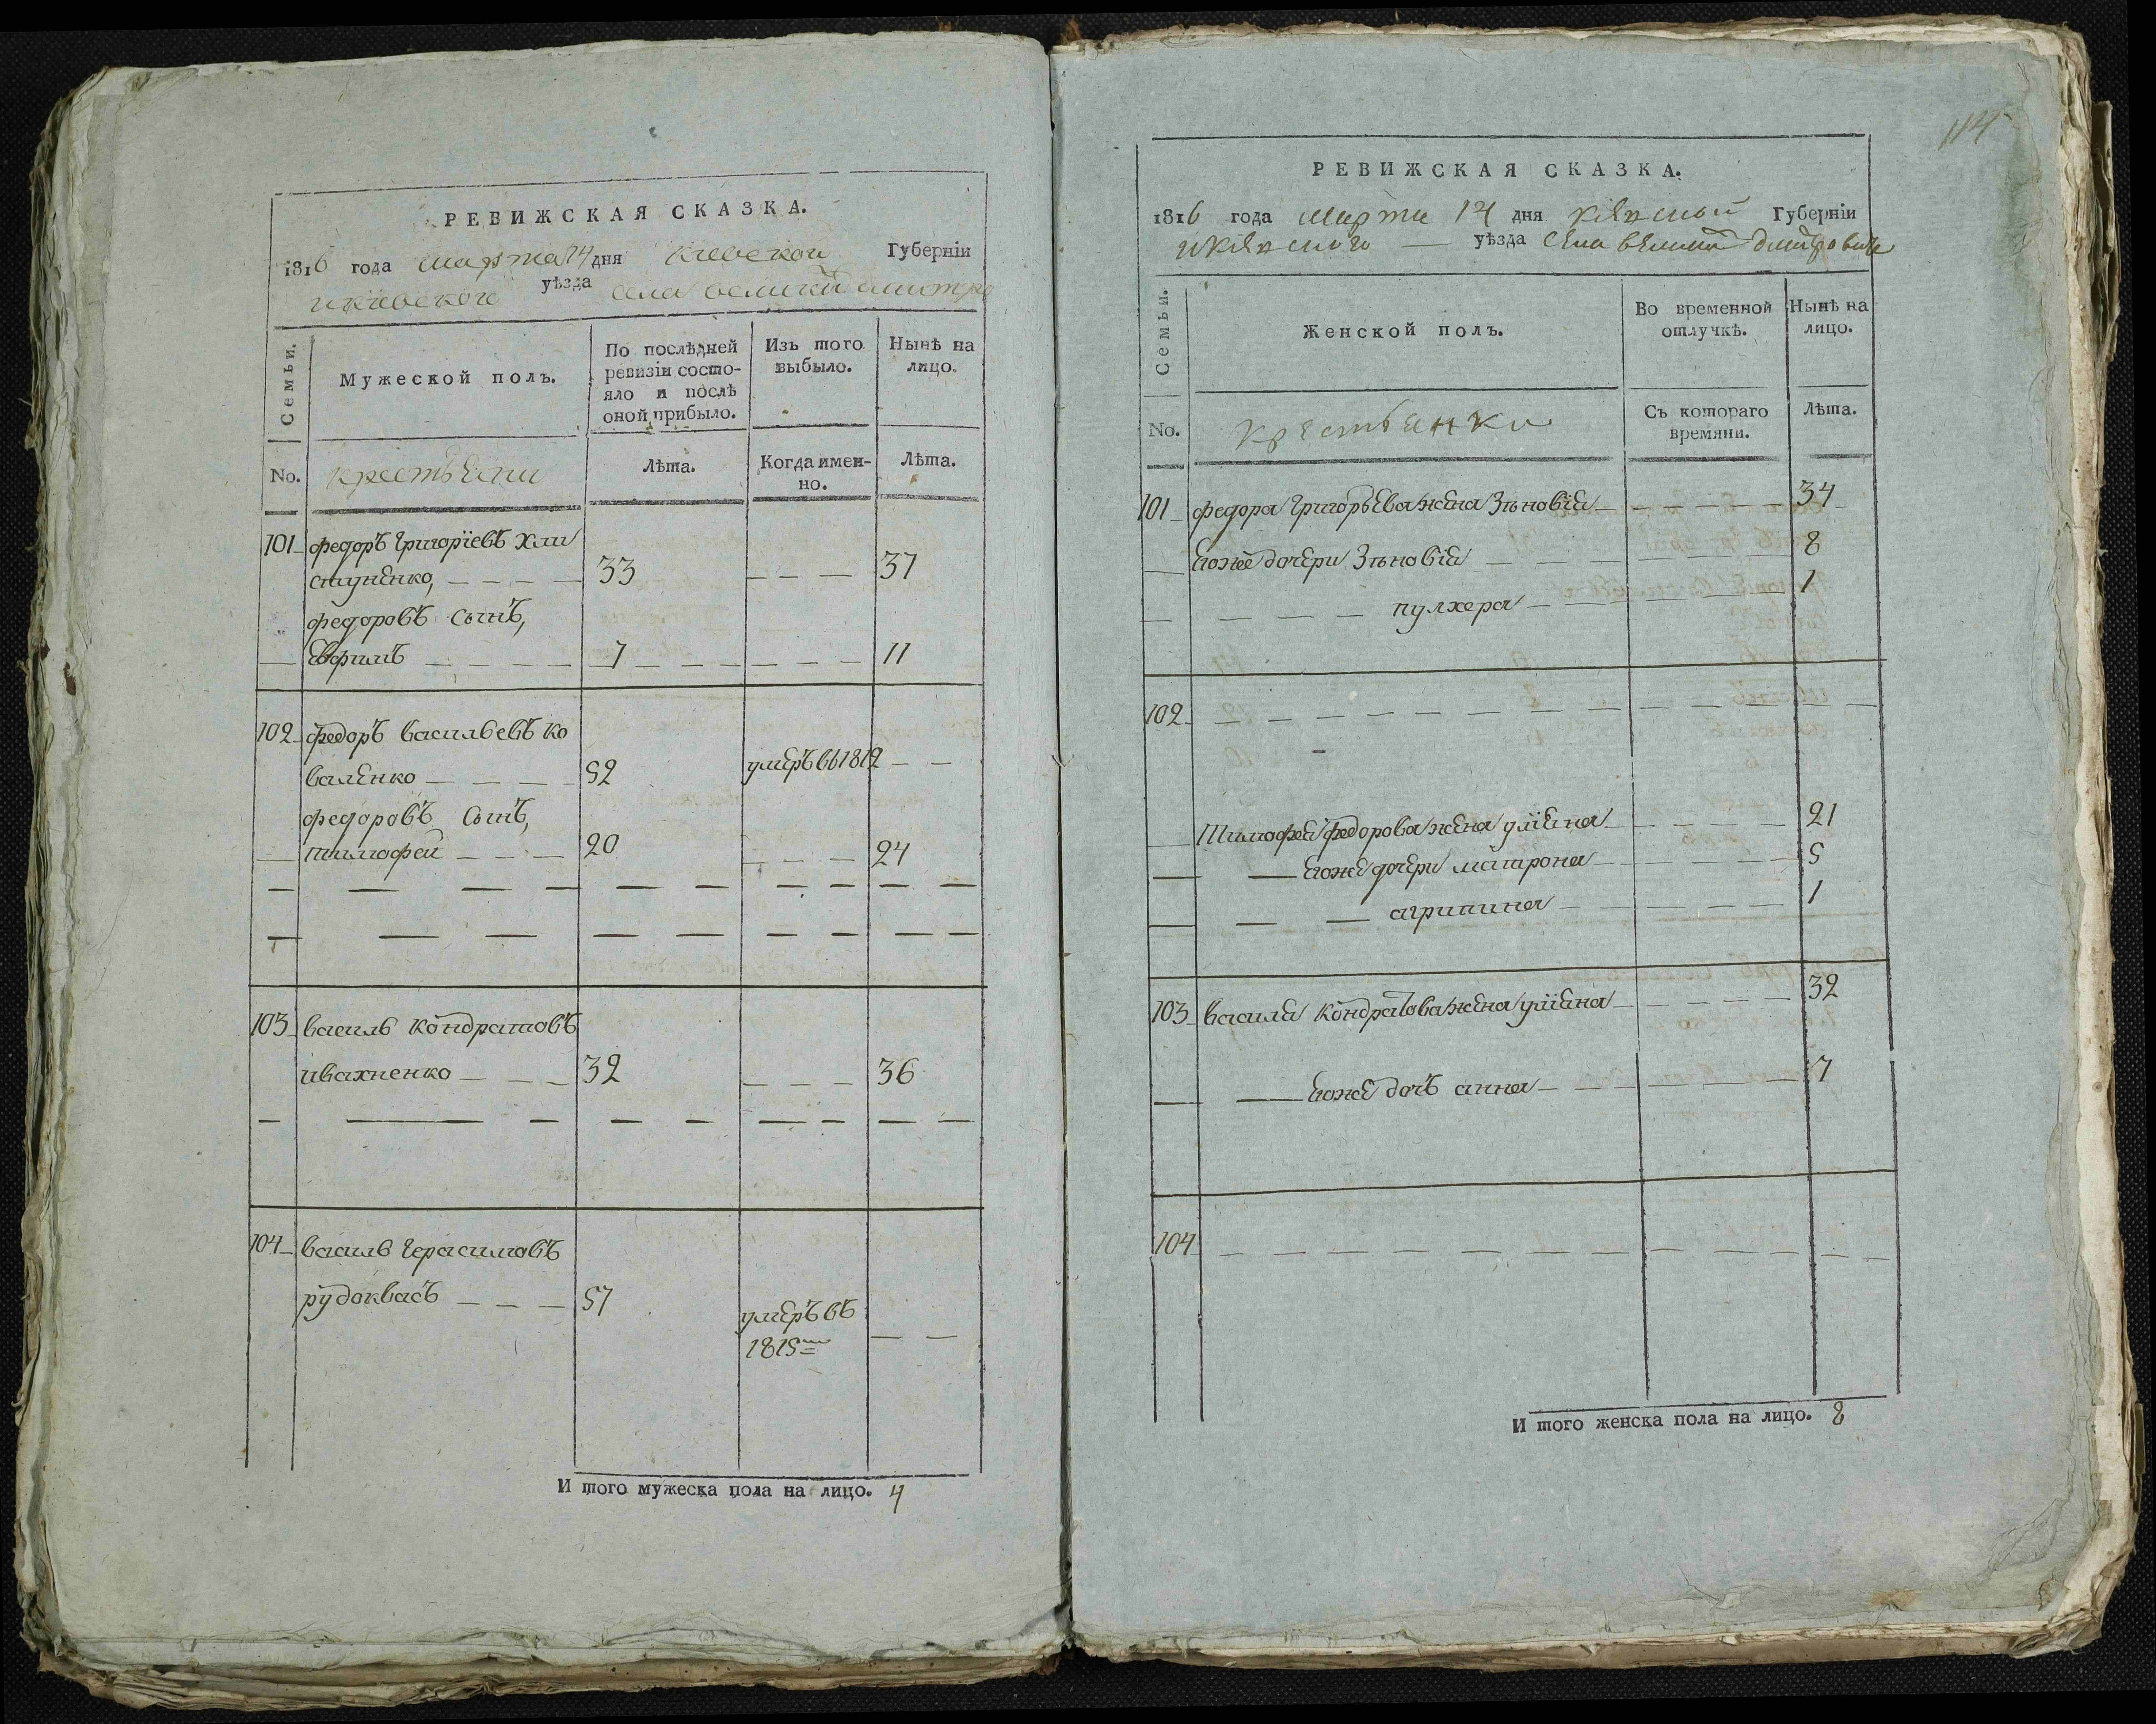 РЕВИЖСКАЯ СКАЗКА.
1816 года марта 14 дня Киевской Губерніи
и киевского уѣзда села великой димитро
Семьи.
Мужеской полъ.
По послѣдней ревизіи состо-
яло и послѣ
оной прибыло.
Изъ того
выбыло.
Нынѣ на
лицо.
No.
крестьяни
Лѣта.
Когда имен-
но.
Лѣта.
101 федоръ григоріевъ хли
стуненко, 33 37
федоровъ сынъ,
Евфимъ 7 11
102 федоръ васильевъ ко
валенко 52 умеръ въ 1812
федоровъ сынъ,
тимофей 20 24
103 василь кондратовъ
ивахненко 32 36
104 василь герасимовъ
рудоквасъ 57 умеръ въ
1815
И того мужеска пола на лицо. 4
114
РЕВИЖСКАЯ СКАЗКА.
1816 года марта 14 дня Губерніи
уѣзда села великой димитровичъ
Семьи.
Женской полъ.
Во временной
отлучкѣ.
Нынѣ на
лицо.
No.
крестьянки
Съ котораго
времяни.
Лѣта.
101 федора григорьева жена Зѣновія 34
Еяже дочери Зѣновія 8
пулхера 1
102
Тимофея федорова жена улияна 21
Еяже дочери матрона 5
агрипина 1
103 василя кондратова жена улияна 32
Еяже дочь анна 7
104
И того женска пола на лицо. 8